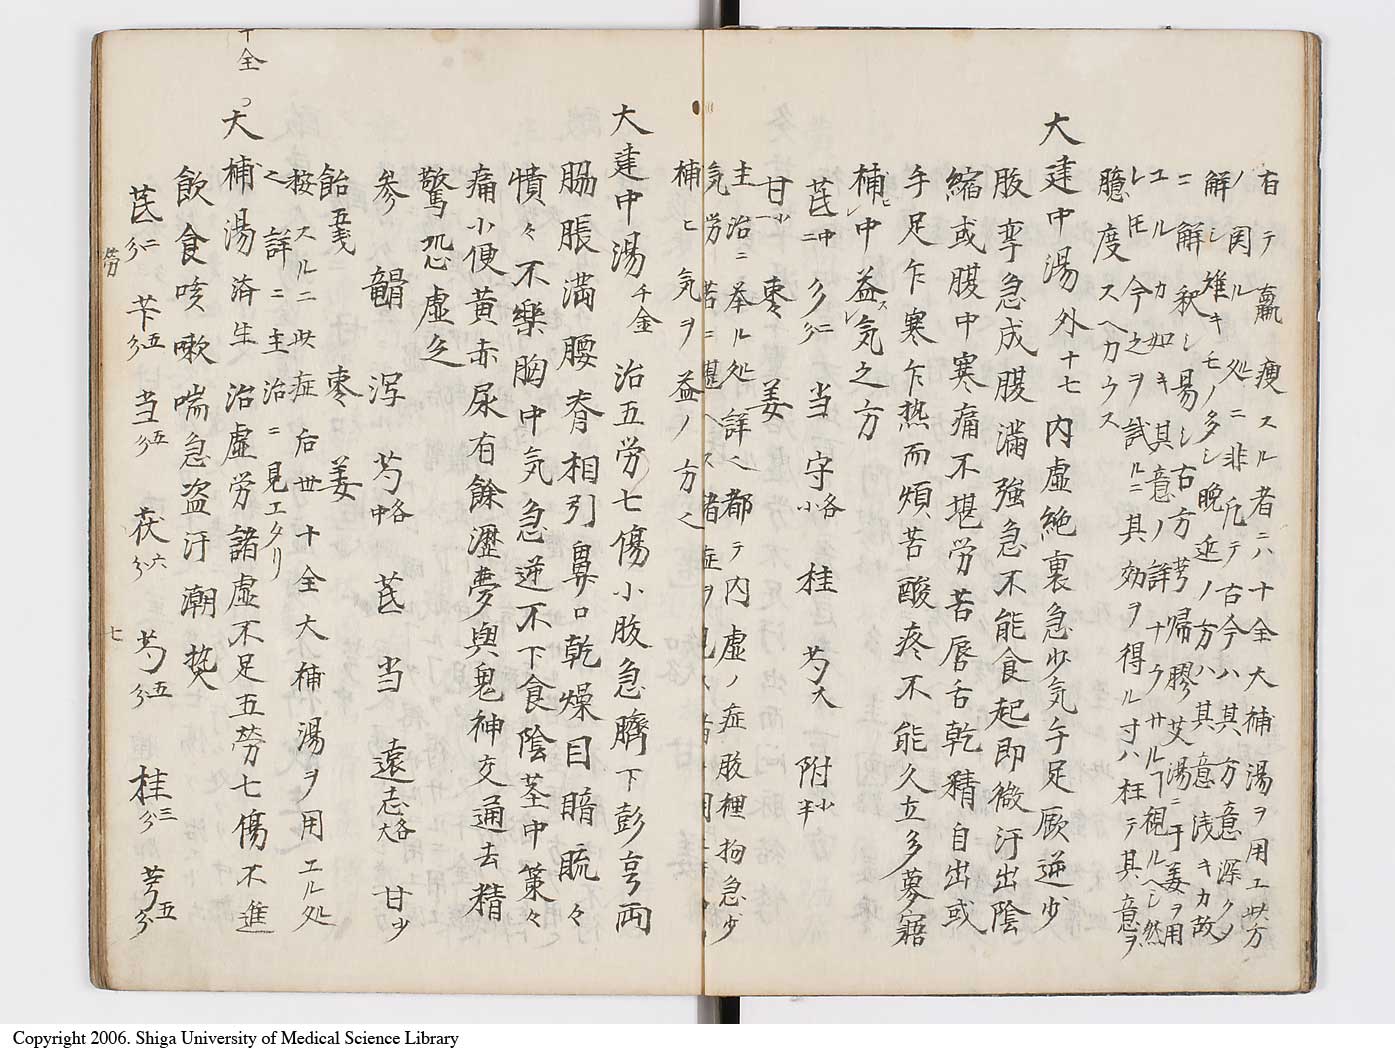 右テ羸痩スル者ニハ十全大補湯ヲ用エ此方
ノ関ル処ニ非凡テ古今ハ其方意深クノ
解シ雖キモノ多シ晩近ノ方ハ其意浅キカ故
ニ解釈シ易シ古方芎帰膠艾湯ニ于姜ヲ用
ユルカ如キ其意ノ詳ナラサルヿ視ルヘシ然
レ𪜈今之ヲ試ルニ其効ヲ得ル寸ハ枉テ其意ヲ
臆度スヘカラス
大建中湯 外十七 内虚絶裏急少気手足厥逆少
腹挛急成腹満強急不能食起即微汗出陰
縮或腹中寒痛不堪労苦唇舌乾精自出或
手足乍寒乍熱而煩苦酸疼不能久立多夢寤
補中益気之方
芪中二 分ニ 当 守各小 桂 芍大 附少半
甘小一 棗 姜
主治ニ挙ル処詳之都テ内虚ノ症腹裡拘急少
気労苦ニ堪ヘス諸症ヲ見ス者
補ヒ気ヲ益ノ方之
大建中湯 千金 治五労七傷小腹急臍下彭亨両
脇脹満腰脊相引鼻口乾燥目暗䀮々
憤々不樂胸中気急逆不下食陰茎中策々
痛小便黄赤尿有餘瀝夢與鬼神交通去精
驚恐虚乏
参 䯝 瀉 芍各中 芪 当 遠志各大 甘少
飴五戔 棗 姜
按スルニ此症后世十全大補湯ヲ用エル処
之詳ニ主治ニ見エタリ
十全
大補湯 済生 治虚労諸虚不足五勞七傷不進
飲食咳嗽喘急盗汗潮熱
芪二分 苄五分 当五分 茯六分 芍五分 桂三分 芎五分
労 七
Copyright 2006. Shiga University of Medical Science Library